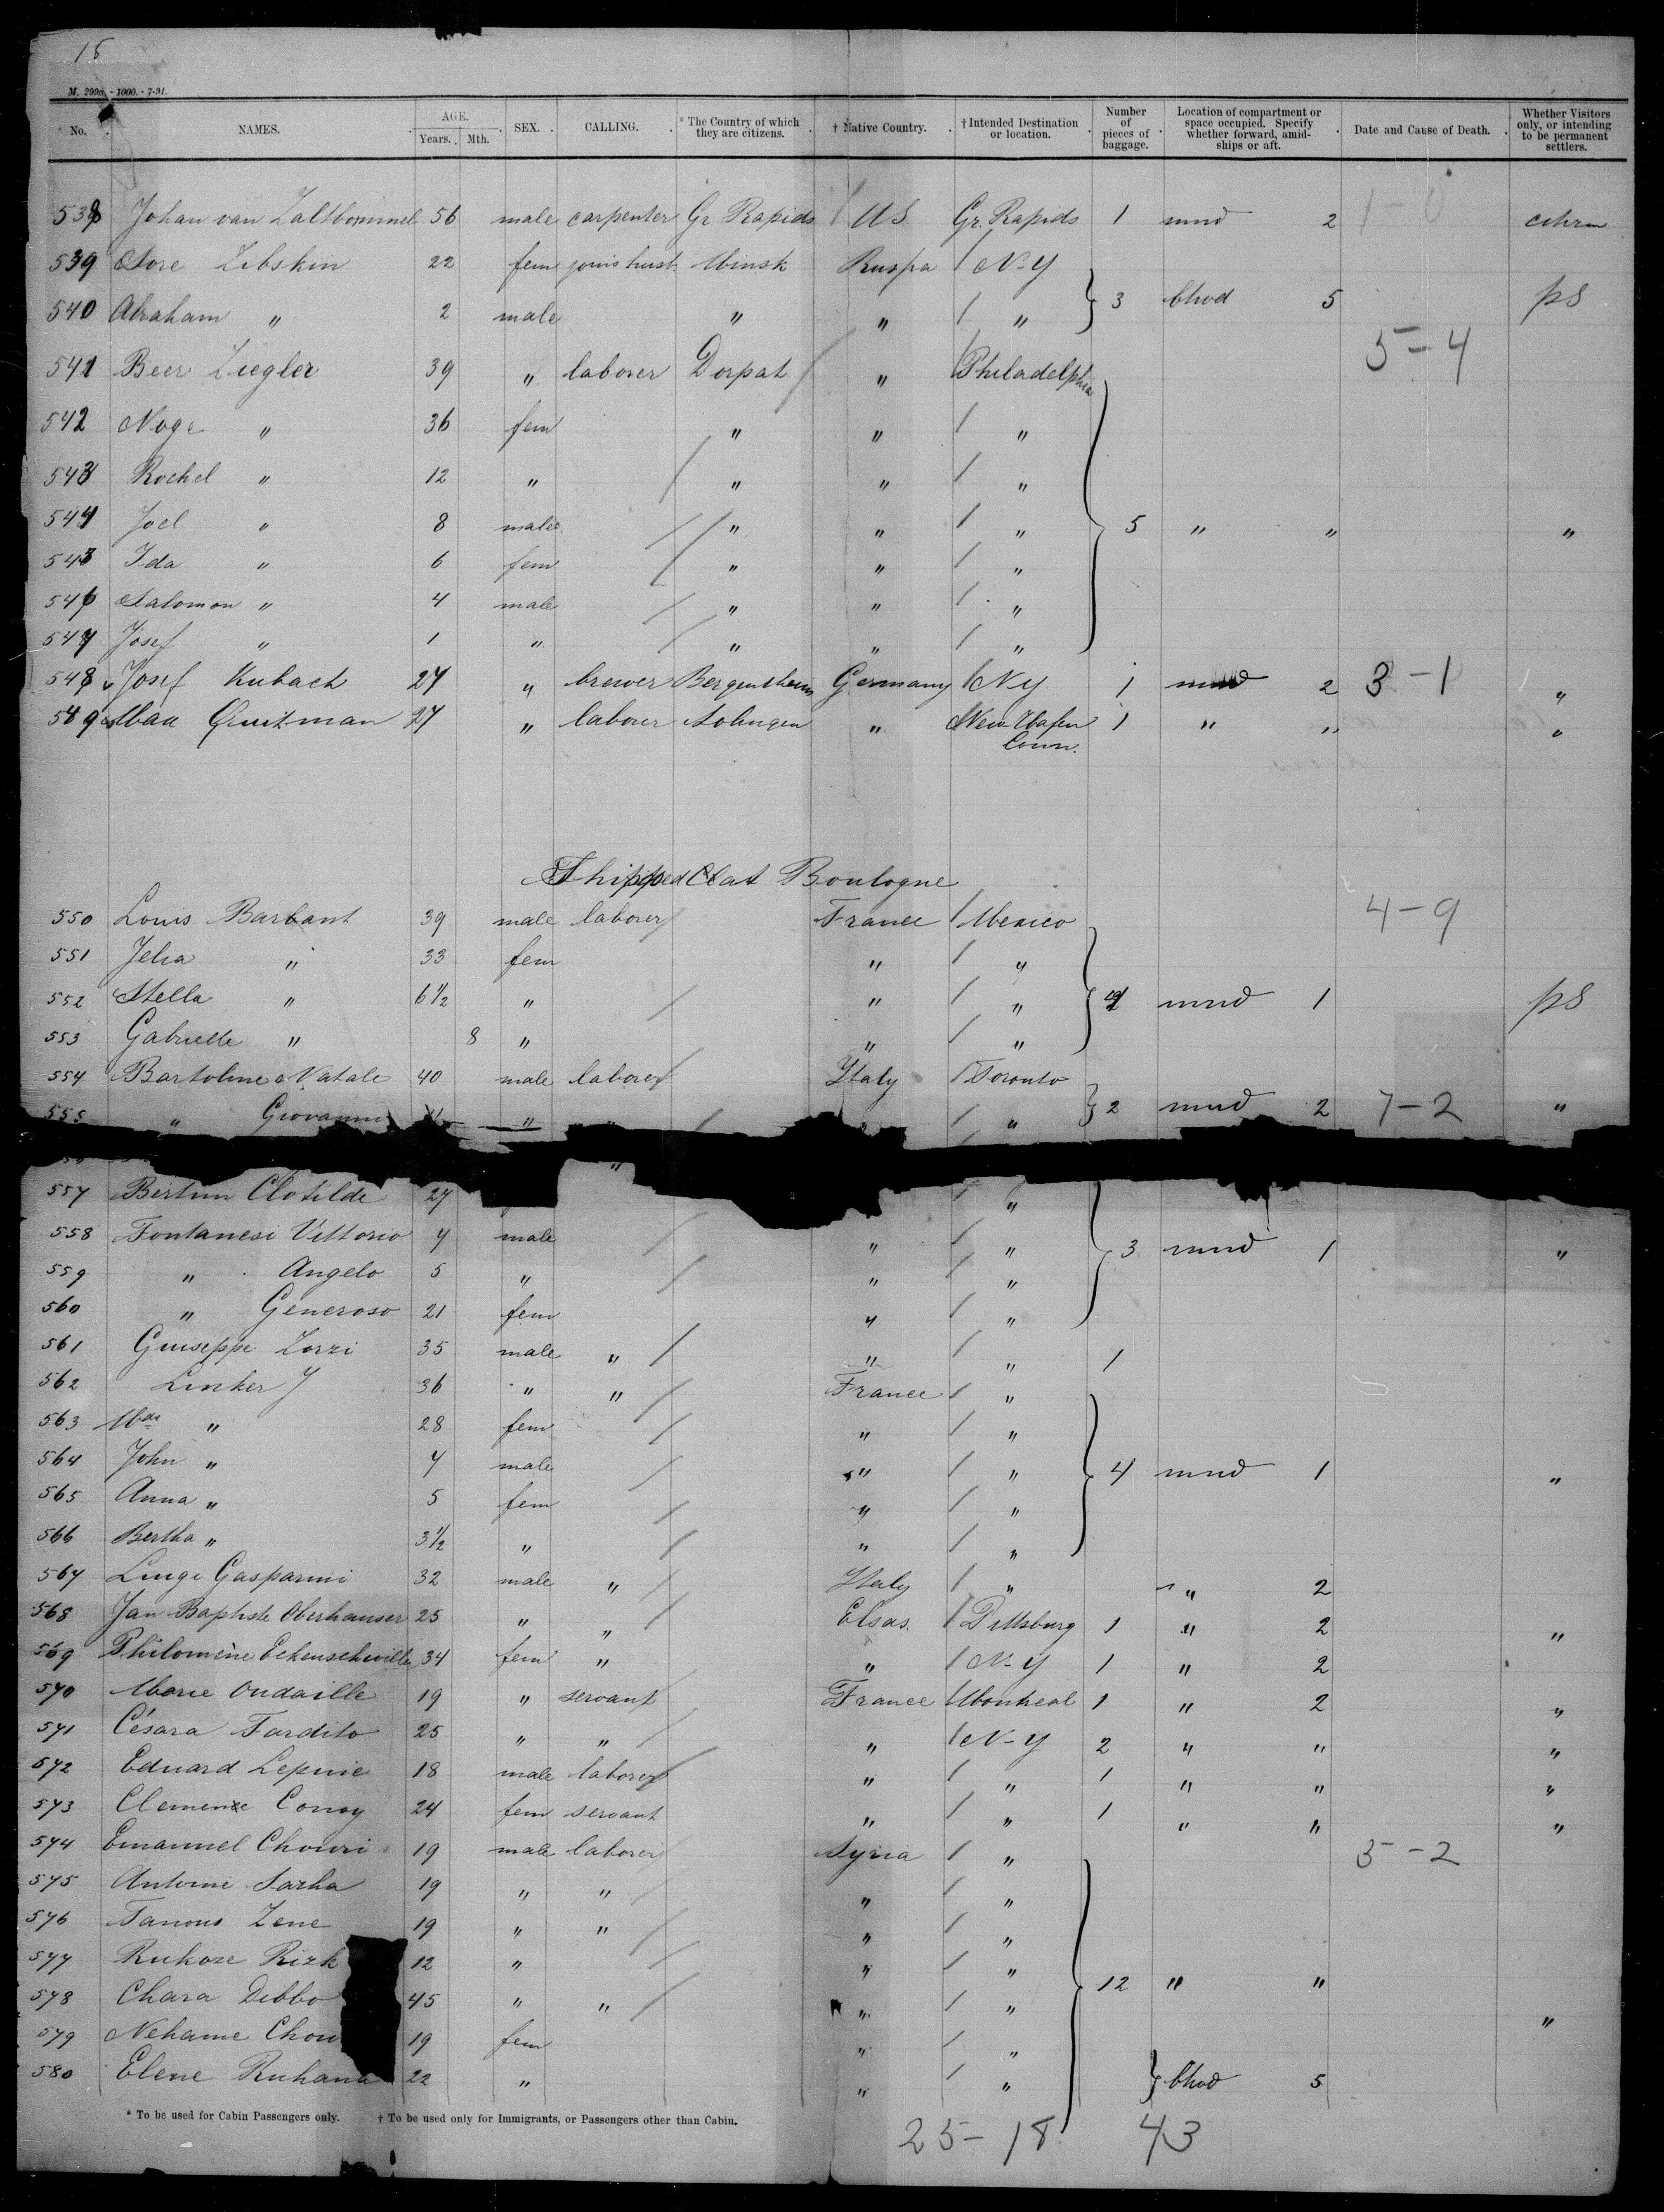 15
M. 299a. - 1000. - 7-91.
No. NAMES. AGE. Years. Mth. SEX. CALLING. * The Country of which they are citizens. † Native Country. † Intended Destination or location. Number of pieces of baggage. Location of compartment or space occupied. Specify whether forward, amidships or aft. Date and Cause of Death. Whether Visitors only, or intending to be permanent settlers.
538 Johan van Zaltbommel 56 male carpenter Gr Rapids US Gr. Rapids 1 mnd 2 1-0
539 Sore Libskin 22 fem Minsk Russia N-Y
540 Abraham " 2 male " " " 3 5 ps
5-4
541 Beer Ziegler 39 " laborer Dorpat " Philadelphia
542 Noge " 36 fem " " "
543 Rochel " 12 " " " "
544 Joel " 8 male " " " 5 " " "
545 Ida " 6 fem " " "
546 Salomon " 4 male " " "
547 Josef " 1 " " " "
548 Josef Kubach 27 " brewer Bergentheim Germany N.Y 1 mnd 2 3-1 "
549 27 " laborer Solingen " New Hafen Conn. 1 " " "
Shipped at Boulogne
550 Louis Barbant 39 male laborer France Mexico 4-9
551 33 fem " "
552 Stella " 6½ " " " 4 mnd 1 ps
553 Gabrielle " 8 " " "
554 Bartoline Natale 40 male laborer Italy Toronto
555 " Giovanni " " " 2 mnd 2 7-2 "
"
557 Bertini Clotilde 27 "
558 Fontanesi Vittorio 7 male " " 3 mnd 1 "
559 " Angelo 5 " " "
560 " Generoso 21 fem " "
561 Guiseppe Zorzi 35 male " " " 1
562 Linker J 36 " " France "
563 Mde " 28 fem " "
564 John " 7 male " " 4 mnd 1 "
565 Anna " 5 fem " "
566 Bertha " 3½ " " "
567 Luigi Gasparini 32 male " Italy " " 2
568 Jan Baptiste Oberhauser 25 " " Elsas Pittsburg 1 " 2 "
569 Philomène Eckenschwiller 34 fem " " N-Y 1 " 2
570 Marie Oudaille 19 " servant France Montreal 1 " 2 "
571 Césara Tardito 25 " " " N-Y 2 " " "
572 Eduard Lepine 18 male laborer " " 1 " " "
573 Clemence Conoy 24 fem servant " " 1 " " "
574 Emanuel Chouri 19 male laborer Syria " 5-2
575 Antoine Sarha 19 " " " "
576 Tanous Zene 19 " " " "
577 Rukoze Rizk 12 " " " 12 " "
578 Chara Dibbo 45 " " " "
579 Nehame Chou 19 fem " " "
580 Elene Ruhana 22 " " " 5
* To be used for Cabin Passengers only. † To be used only for Immigrants, or Passengers other than Cabin.
25-18 43